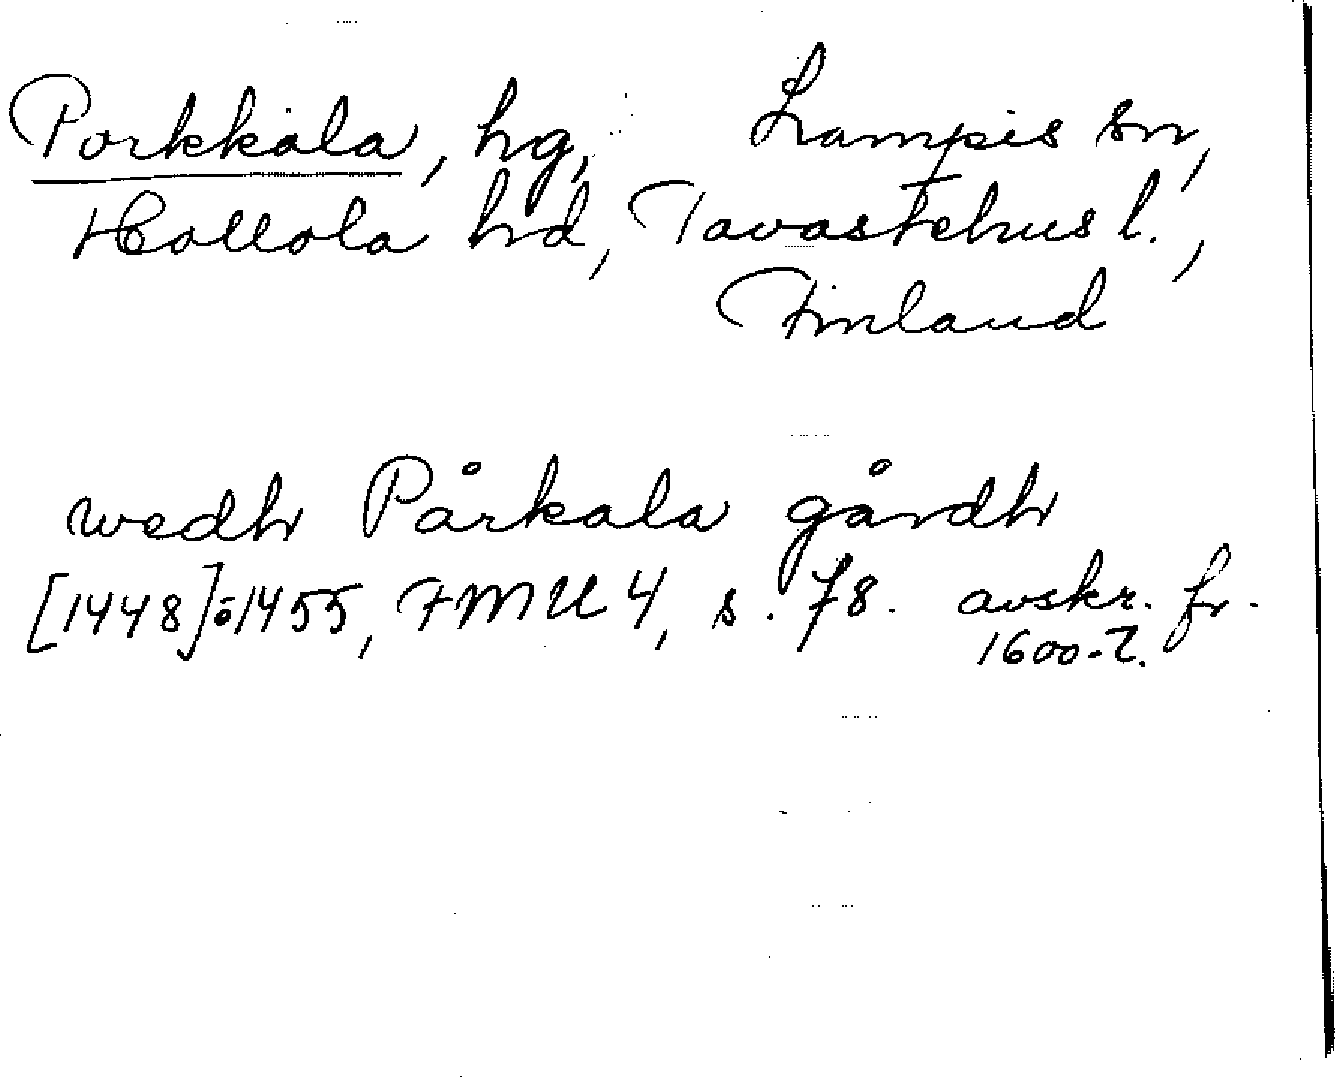 Porkkala, hg, Lampis sn,
Hollola hd, Tavastehus l.,
Finland
wedh Pårkala gårdh
[1448]÷1455, FMU 4, s. 78. avskr. fr.
1600-t.